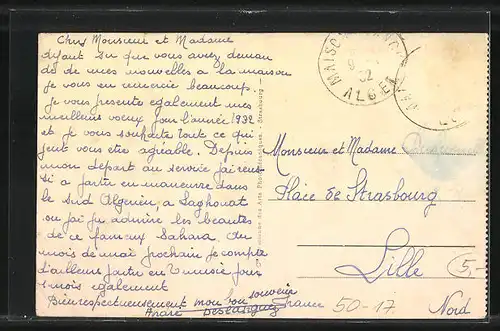 Chers Monsieur et Madame
ayant su que vous avez deman
dé de mes nouvelles a la maison
je vous en remercie beaucoup.
je vous presente egalement mes
meilleurs voeux pour l'année 1932
et je vous souhaite tout ce qui
peut vous etre agréable. Depuis
mon départ au service j'ai reus
si a partir en manœuvre dans
le sud Algerien, a Laghouat
ou j'ai pu admirer les beautés
de ce fameux Sahara. Au
mois de mai prochain je compte
d'ailleurs partir en Tunisie pour
mois egalement
Bien respectueusement mon bon souvenir
André
MAISON
9
32
ALGER
Monsieur et Madame
Place de Strasbourg
Lille
France
Nord
50-17
5,-